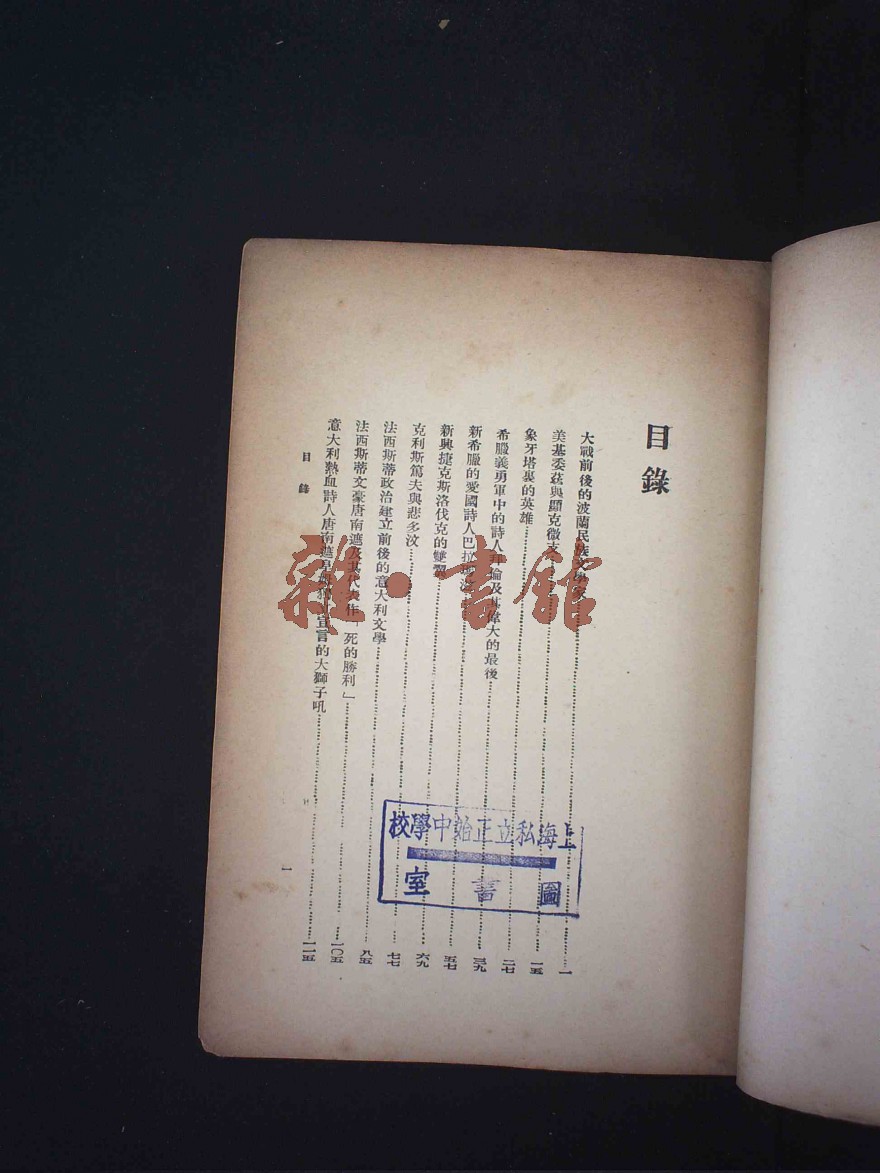 目錄
大戰前後的波蘭民族文學家……一
美基委茲與顯克微支……一五
象牙塔裏的英雄……二七
希臘義勇軍中的詩人拜倫及其偉大的最後……三九
新希臘的愛國詩人巴拉……五七
新興捷克斯洛伐克的雙翼……六九
克利斯篤夫與悲多汶……七七
法西斯蒂政治建立前後的意大利文學……八五
法西斯蒂文豪唐南遮及其代表作「死的勝利」……一〇五
意大利熱血詩人唐南遮宣言的大獅子吼……一一五
目錄
一
上海私立正始中學校
圖書室
雜·書館